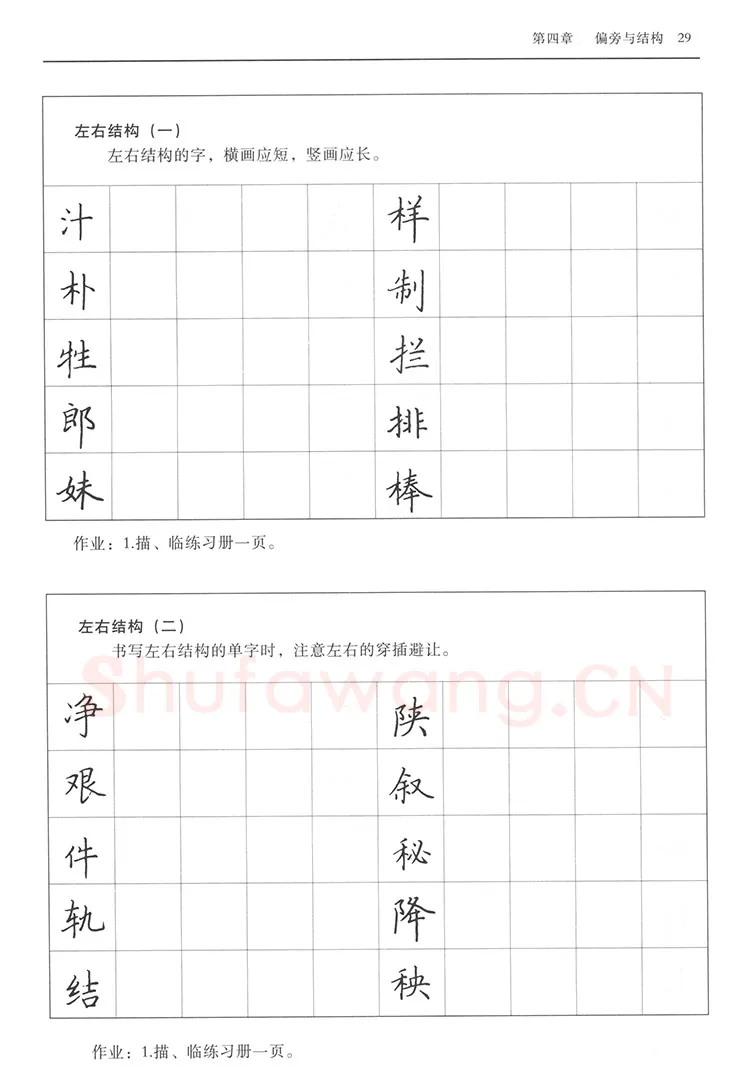 第四章 偏旁与结构 29
左右结构（一）
左右结构的字，横画应短，竖画应长。
汁 样
朴 制
牲 拦
郎 排
妹 棒
作业：1.描、临练习册一页。
左右结构（二）
书写左右结构的单字时，注意左右的穿插避让。
Shufawang.CN
净 陕
艰 叙
件 秘
轨 降
结 秧
作业：1.描、临练习册一页。